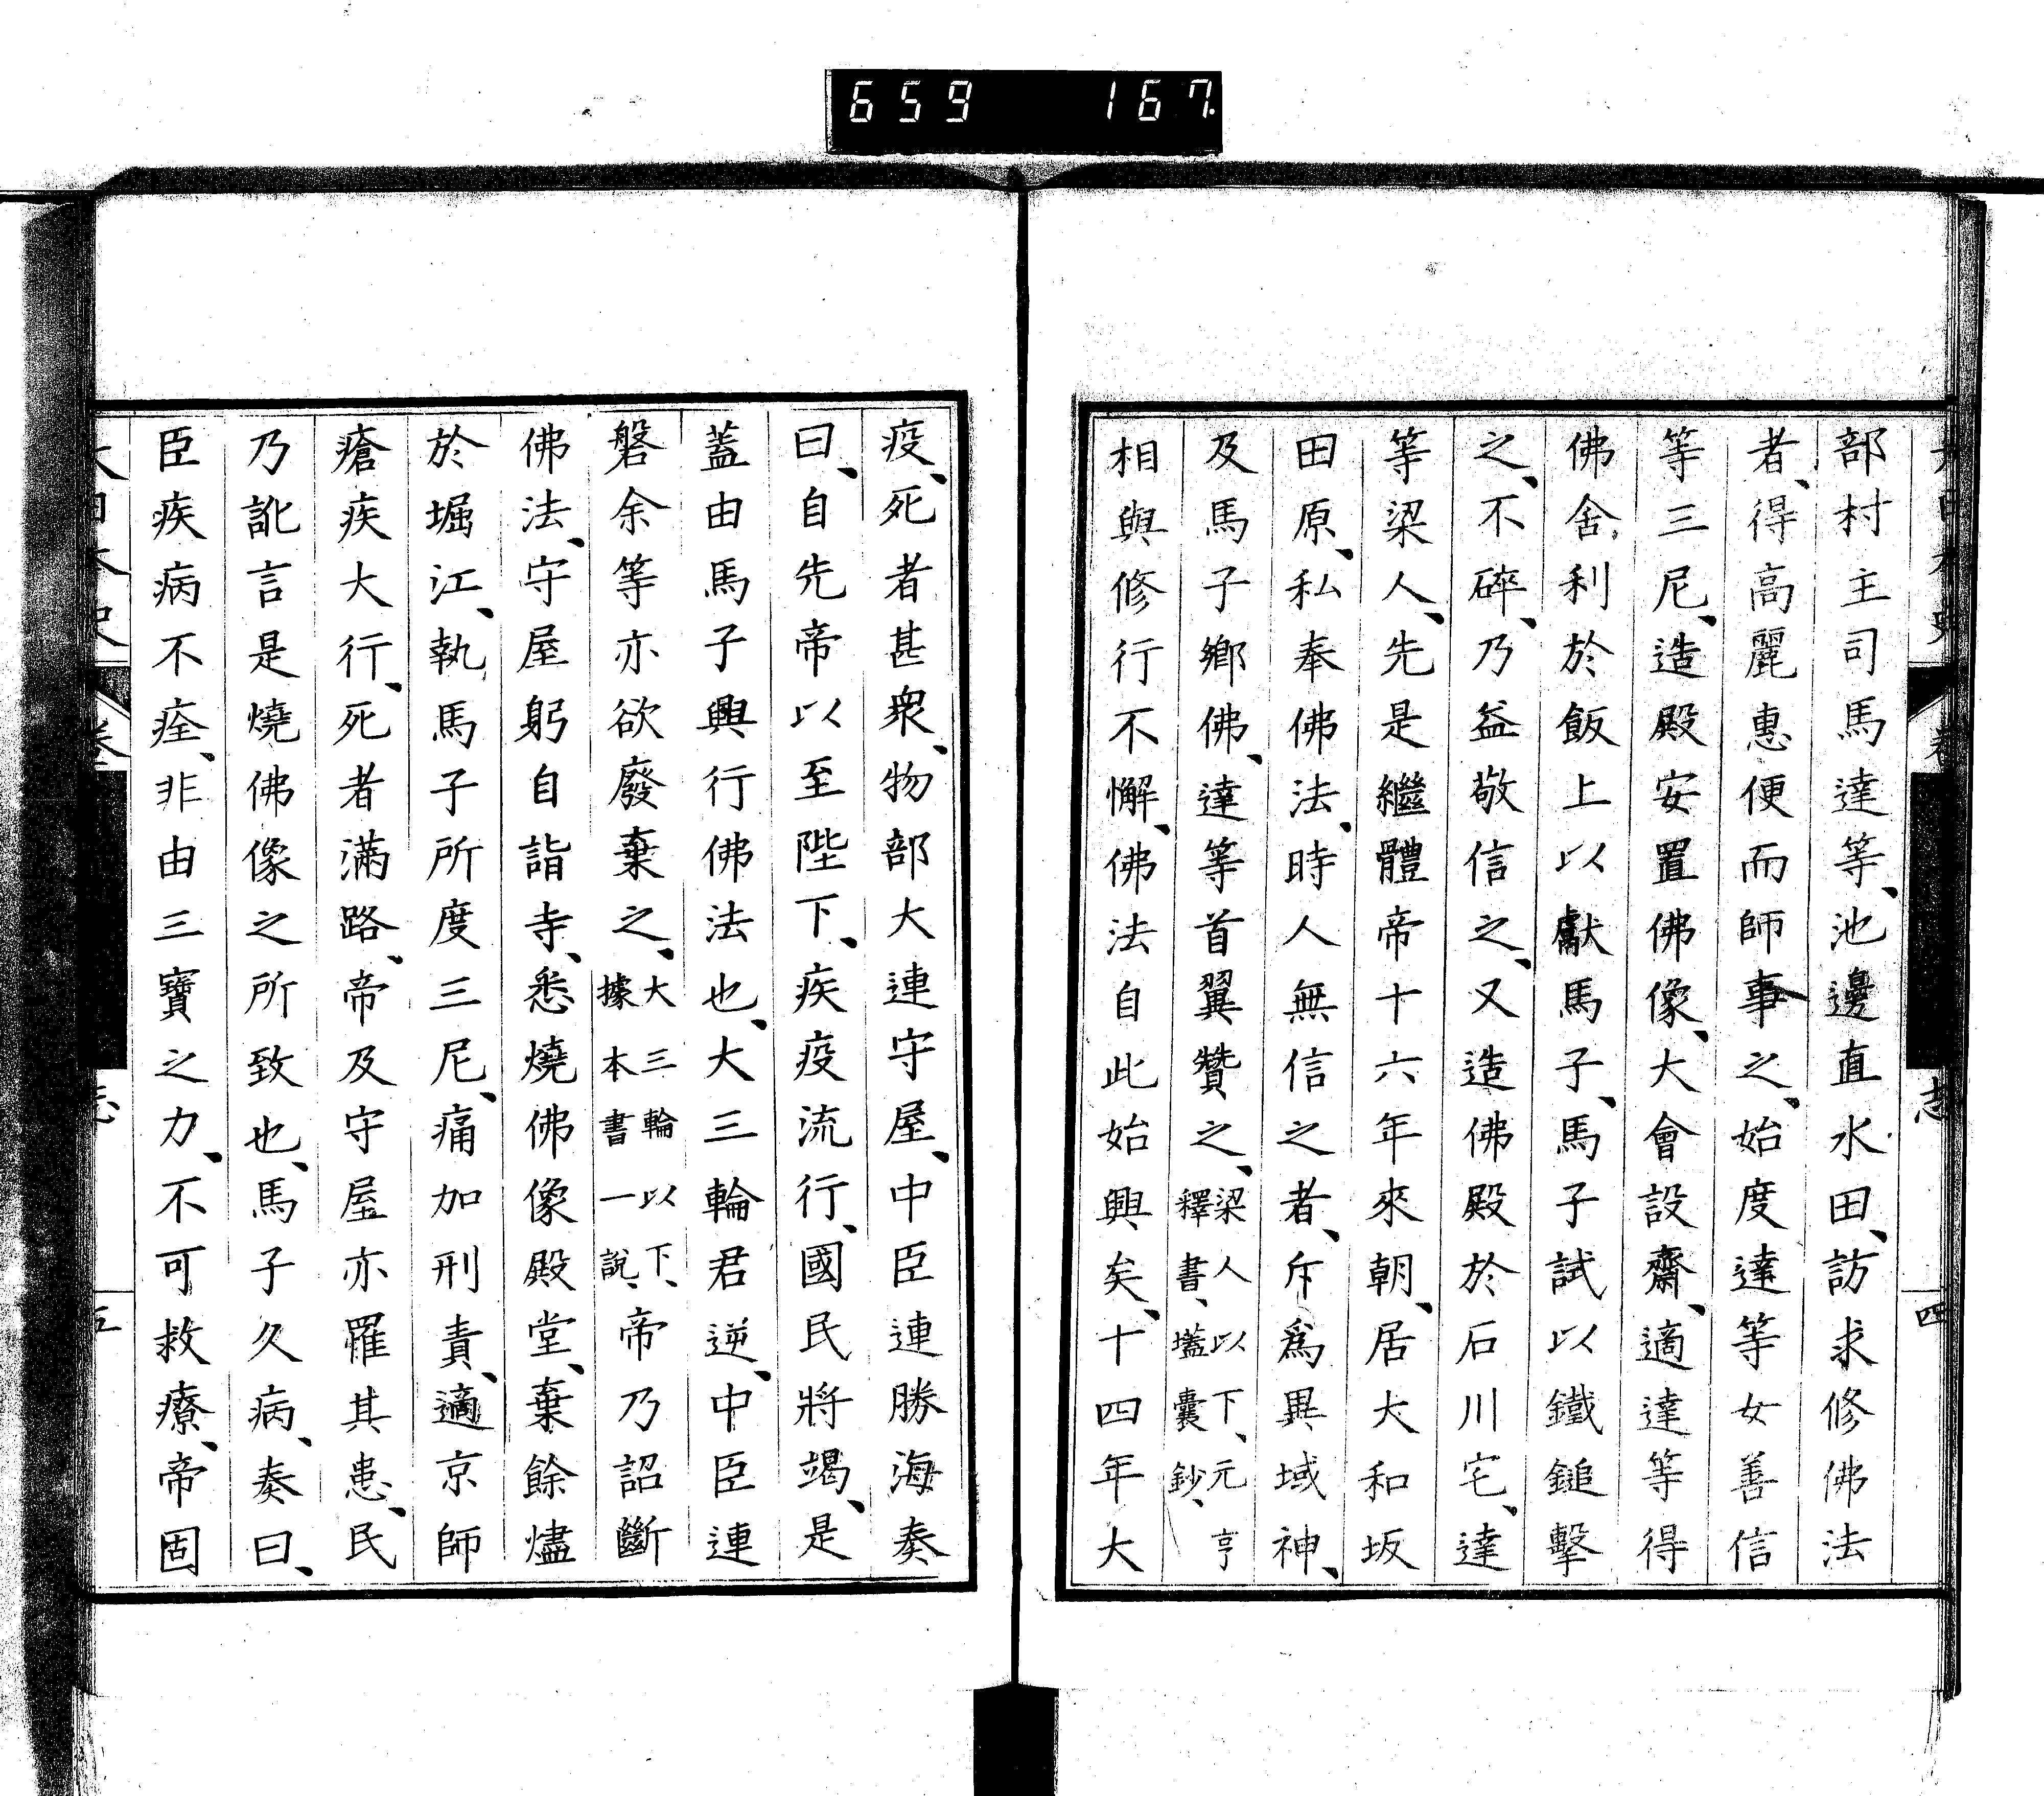 659 167
部村主司馬達等、池邊直水田、訪求修佛法
者、得高麗惠便而師事之、始度達等女善信
等三尼、造殿安置佛像、大會設齋、適達等得
佛舍利於飯上以獻馬子、馬子試以鐵鎚擊
之、不碎、乃益敬信之、又造佛殿於石川宅、達
等梁人、先是繼體帝十六年來朝、居大和坂
田原、私奉佛法、時人無信之者、斥爲異域神、
及馬子鄉佛、達等首翼贊之、梁人以下、元亨
釋書、壒囊鈔、
相與修行不懈、佛法自此始興矣、十四年大
志
四
疫、死者甚衆、物部大連守屋、中臣連勝海奏
曰、自先帝以至陛下、疾疫流行、國民將竭、是
蓋由馬子興行佛法也、大三輪君逆、中臣連
磐余等亦欲廢棄之、大三輪以下、
據本書一說、帝乃詔斷
佛法、守屋躬自詣寺、悉燒佛像殿堂、棄餘燼
於堀江、執馬子所度三尼、痛加刑責、適京師
瘡疾大行、死者滿路、帝及守屋亦罹其患、民
乃訛言是燒佛像之所致也、馬子久病、奏曰、
臣疾病不痊、非由三寶之力、不可救療、帝固